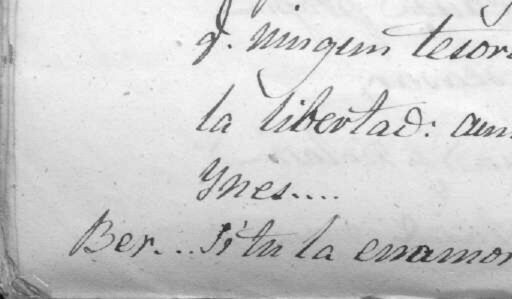 q. ningun tesor
la libertad: aun
Ynes....
Ber... Si tu la enamor